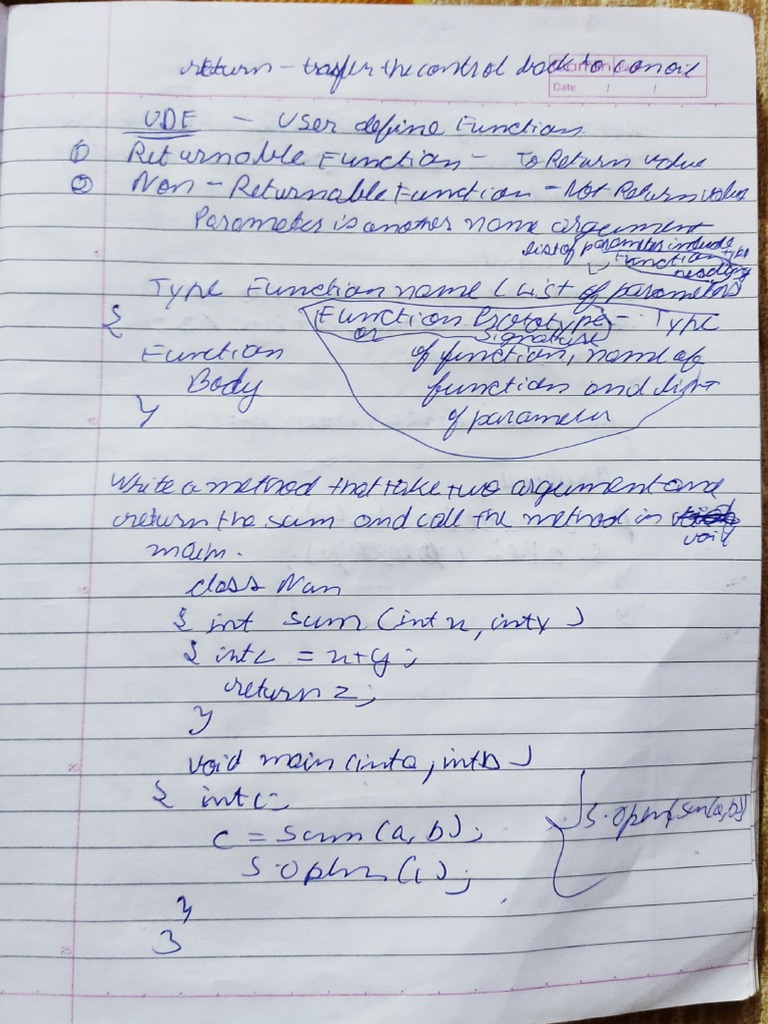 return - trasfer the control back to
Date
UDF - User define Function
① Returnable Function - To Return value
② Non - Returnable Function - Not Return value
Parameter is another name argument
list of parameter include
Function type
Type Function name ( List of parameters)
{
Function Prototype - Type
or Signature
Function of function, name of
Body function and list
} of parameter
Write a method that take two argument and
return the sum and call the method in
void
main.
class Nan
{ int sum (int x, int y)
{ int z = x+y;
return z;
}
void main (int a, int b)
{ int c;
c = sum (a, b); S.opln(sum(a,b))
S.opln(c);
}
}